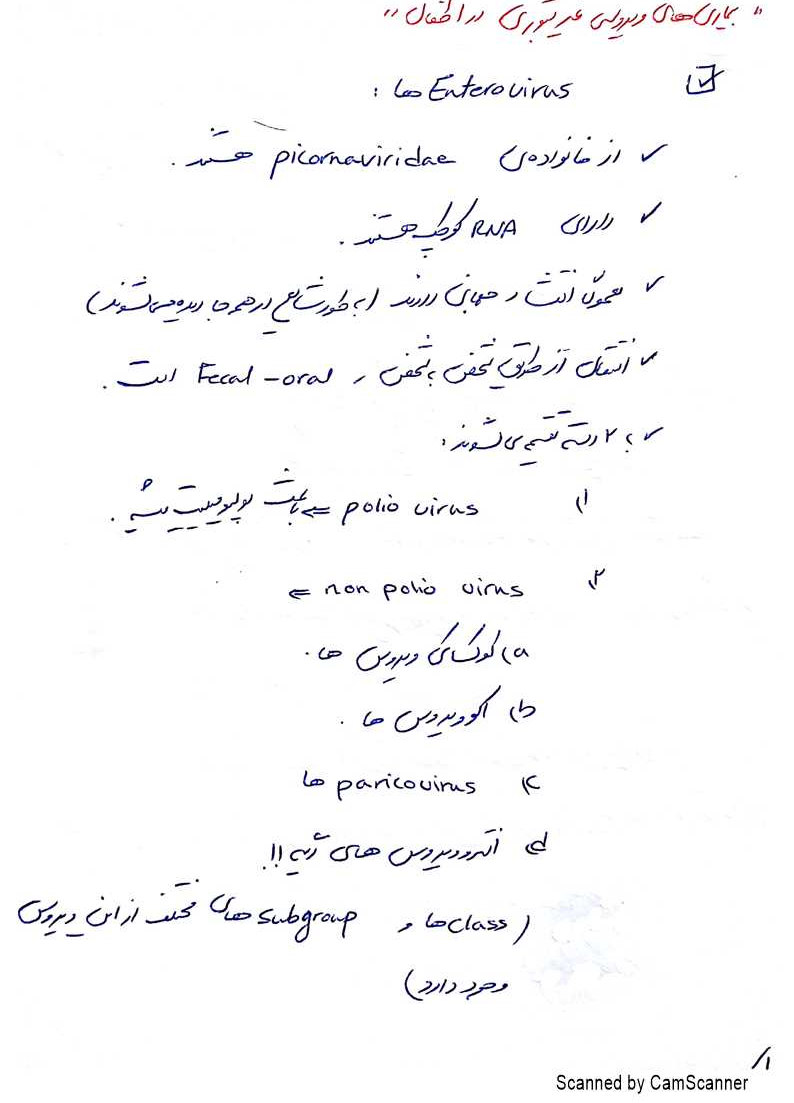 "بیماری‌های ویروسی غیر تبوری در اطفال"
Enterovirus ها :
✓ از خانواده‌ی picornaviridae هستند .
✓ دارای RNA کوچک هستند .
✓ معمولاً انتشار جهانی دارند (به طور شایع در همه جا دیده می‌شوند)
✓ انتقال از طریق شخص به شخص و Fecal-oral است .
✓ به ۲ دسته تقسیم می‌شوند :
۱) polio virus ⇐ باعث پولیومیلیت میشه .
۲) non polio virus ⇐
a) کوکساکی ویروس ها .
b) اکوویروس ها .
c) paricovirus ها
d) انتروویروس های
(class ها و subgroup های مختلف از این ویروس
وجود دارد)
۱/
Scanned by CamScanner